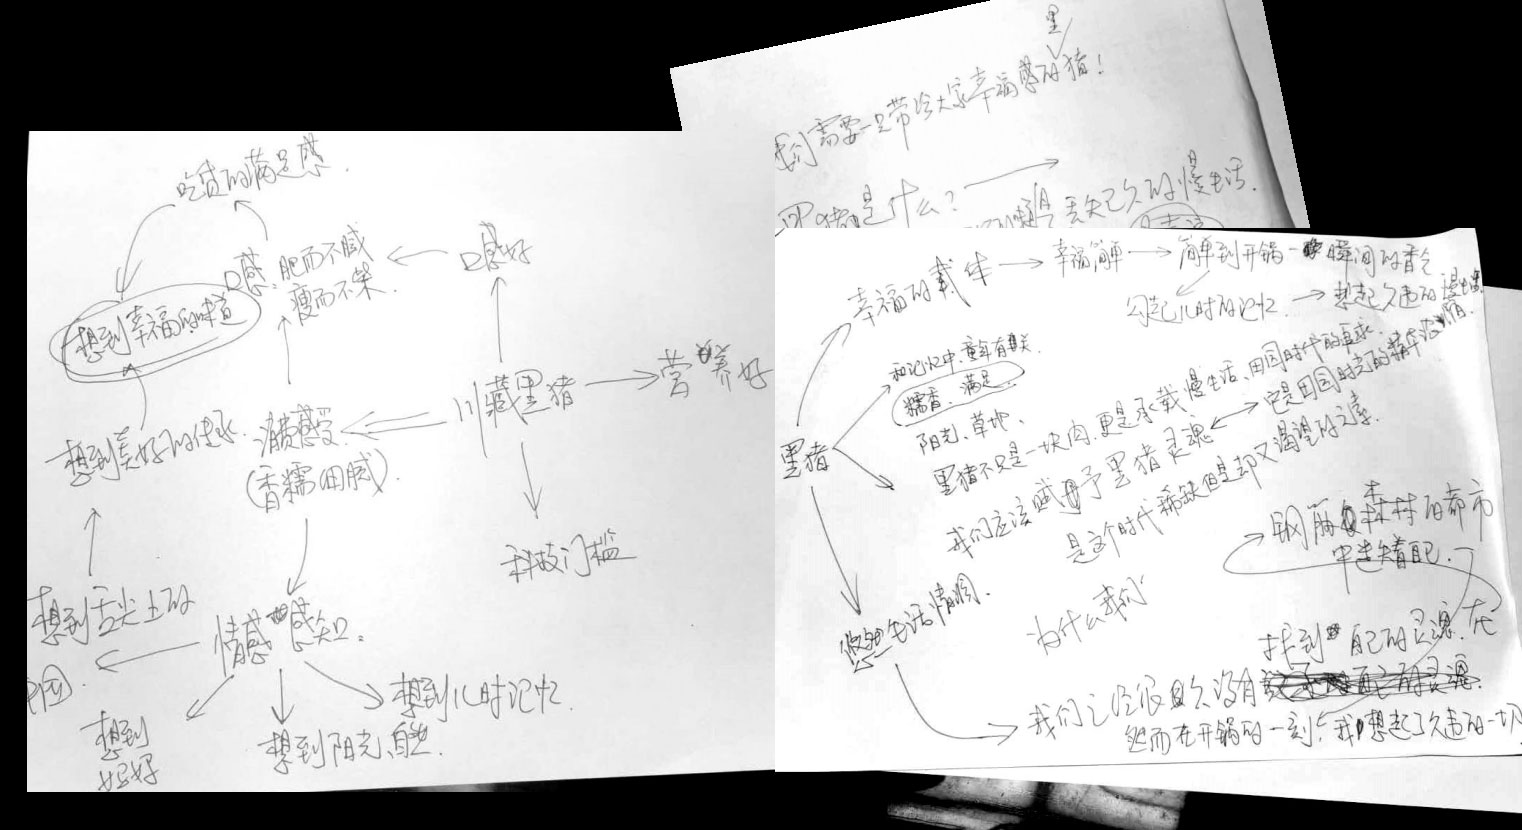 吃货的满足感.
口感:肥而不腻
瘦而不柴.
口感好
想到幸福的味道
川藏黑猪
营养好
想到美好的佳求.
消费感受
(香糯细腻).
科技门槛
想到舌尖上的
中国.
情感感知.
想到
妈妈好
想到阳光、自然.
想到儿时记忆.
黑
我们需要一只带给大家幸福感的猪!
黑猪是什么?
丢失已久的慢生活.
黑猪
幸福的载体
幸福简单
简单到开锅一瞬间的香气
勾起儿时的记忆.
想起久违的
和记忆中.童年有关.
糯香、满足.
阳光、草地、
黑猪不只是一块肉.更是承载慢生活、田园时代的追求.
我们应该赋予黑猪灵魂
它是田园时光的精华
是这个时代稀缺但是却又渴望的元素.
钢筋森林的都市
中迷失着自己.
悠然生活情调.
为什么我们
找到自己的灵魂.在
我们已经很久没有
然而在开锅的一刻,我想起了久违的一切